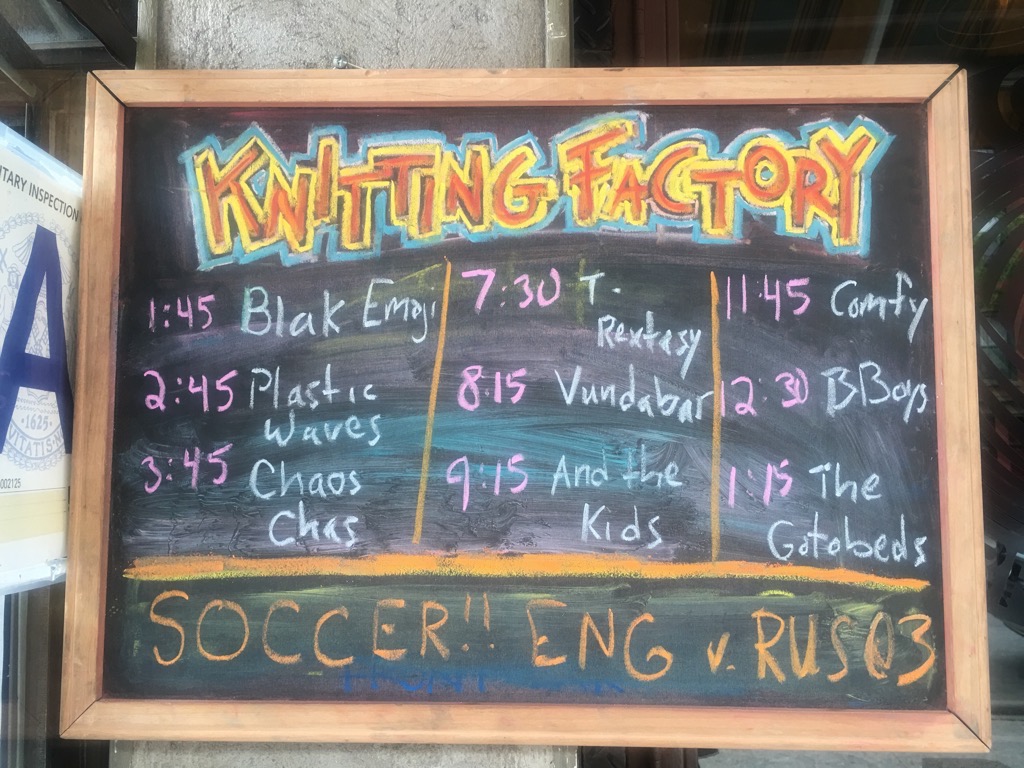 ITARY INSPECTION
A
·1625·
VITATIS·N
002125
KNITTING FACTORY
1:45 Blak Emoji
2:45 Plastic
Waves
3:45 Chaos
Chas
7:30 T.
Rextasy
8:15 Vundabar
9:15 And the
Kids
11:45 Comfy
12:30 BBoys
1:15 The
Gotobeds
SOCCER!! ENG v. RUS @3